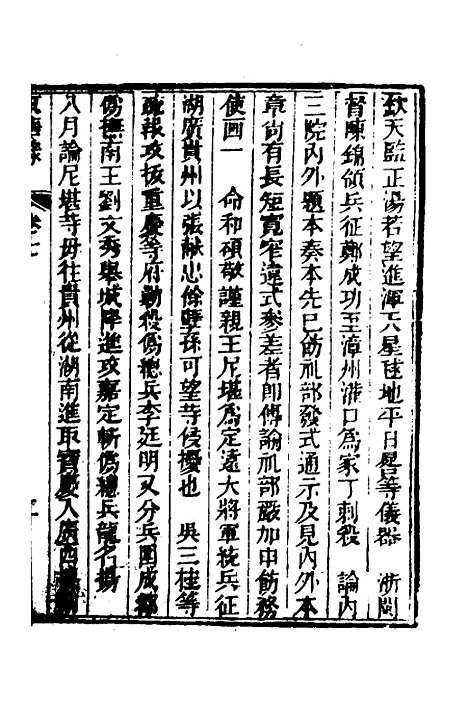 欽天監正湯若望進渾天星毬地平日晷等儀器　浙閩
督陳錦領兵征鄭成功至漳州灌口為家丁刺殺　諭內
三院內外題本奏本先已飭礼部發式通示及見內外本
章尚有長短寬窄違式參差者即傳諭礼部嚴加申飭務
使画一　命和碩敬謹親王尼堪為定遠大將軍統兵征
湖廣貴州以張献忠餘孽孫可望等侵擾也　吳三桂等
疏報攻拔重慶等府勦殺偽總兵李廷明又分兵圍成都
偽撫南王劉文秀舉城降進攻嘉定斬偽總兵龍名揚
八月諭尼堪等毋往貴州從湖南進取寶慶入廣西
卷之七